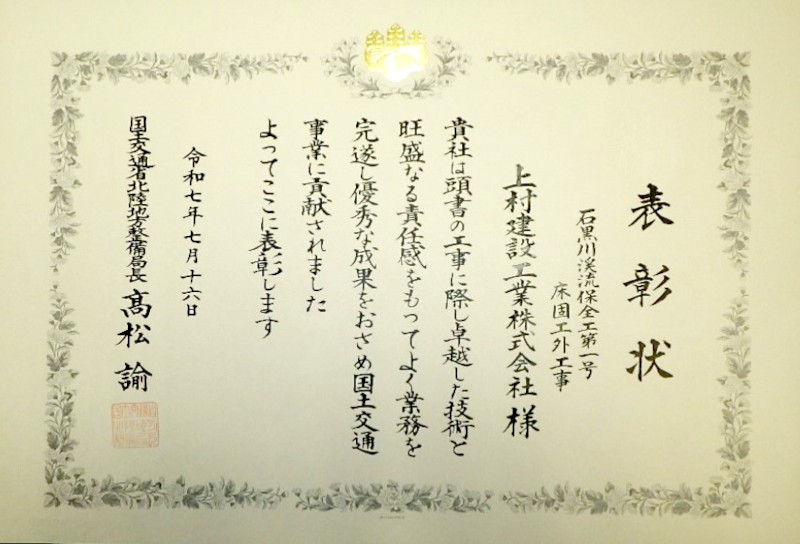 表彰状
石黒川渓流保全工第一号
床固工外工事
上村建設工業株式会社 様
貴社は頭書の工事に際し卓越した技術と
旺盛なる責任感をもってよく業務を
完遂し優秀な成果をおさめ国土交通
事業に貢献されました
よってここに表彰します
令和七年七月十六日
国土交通省北陸地方整備局長 髙松 諭